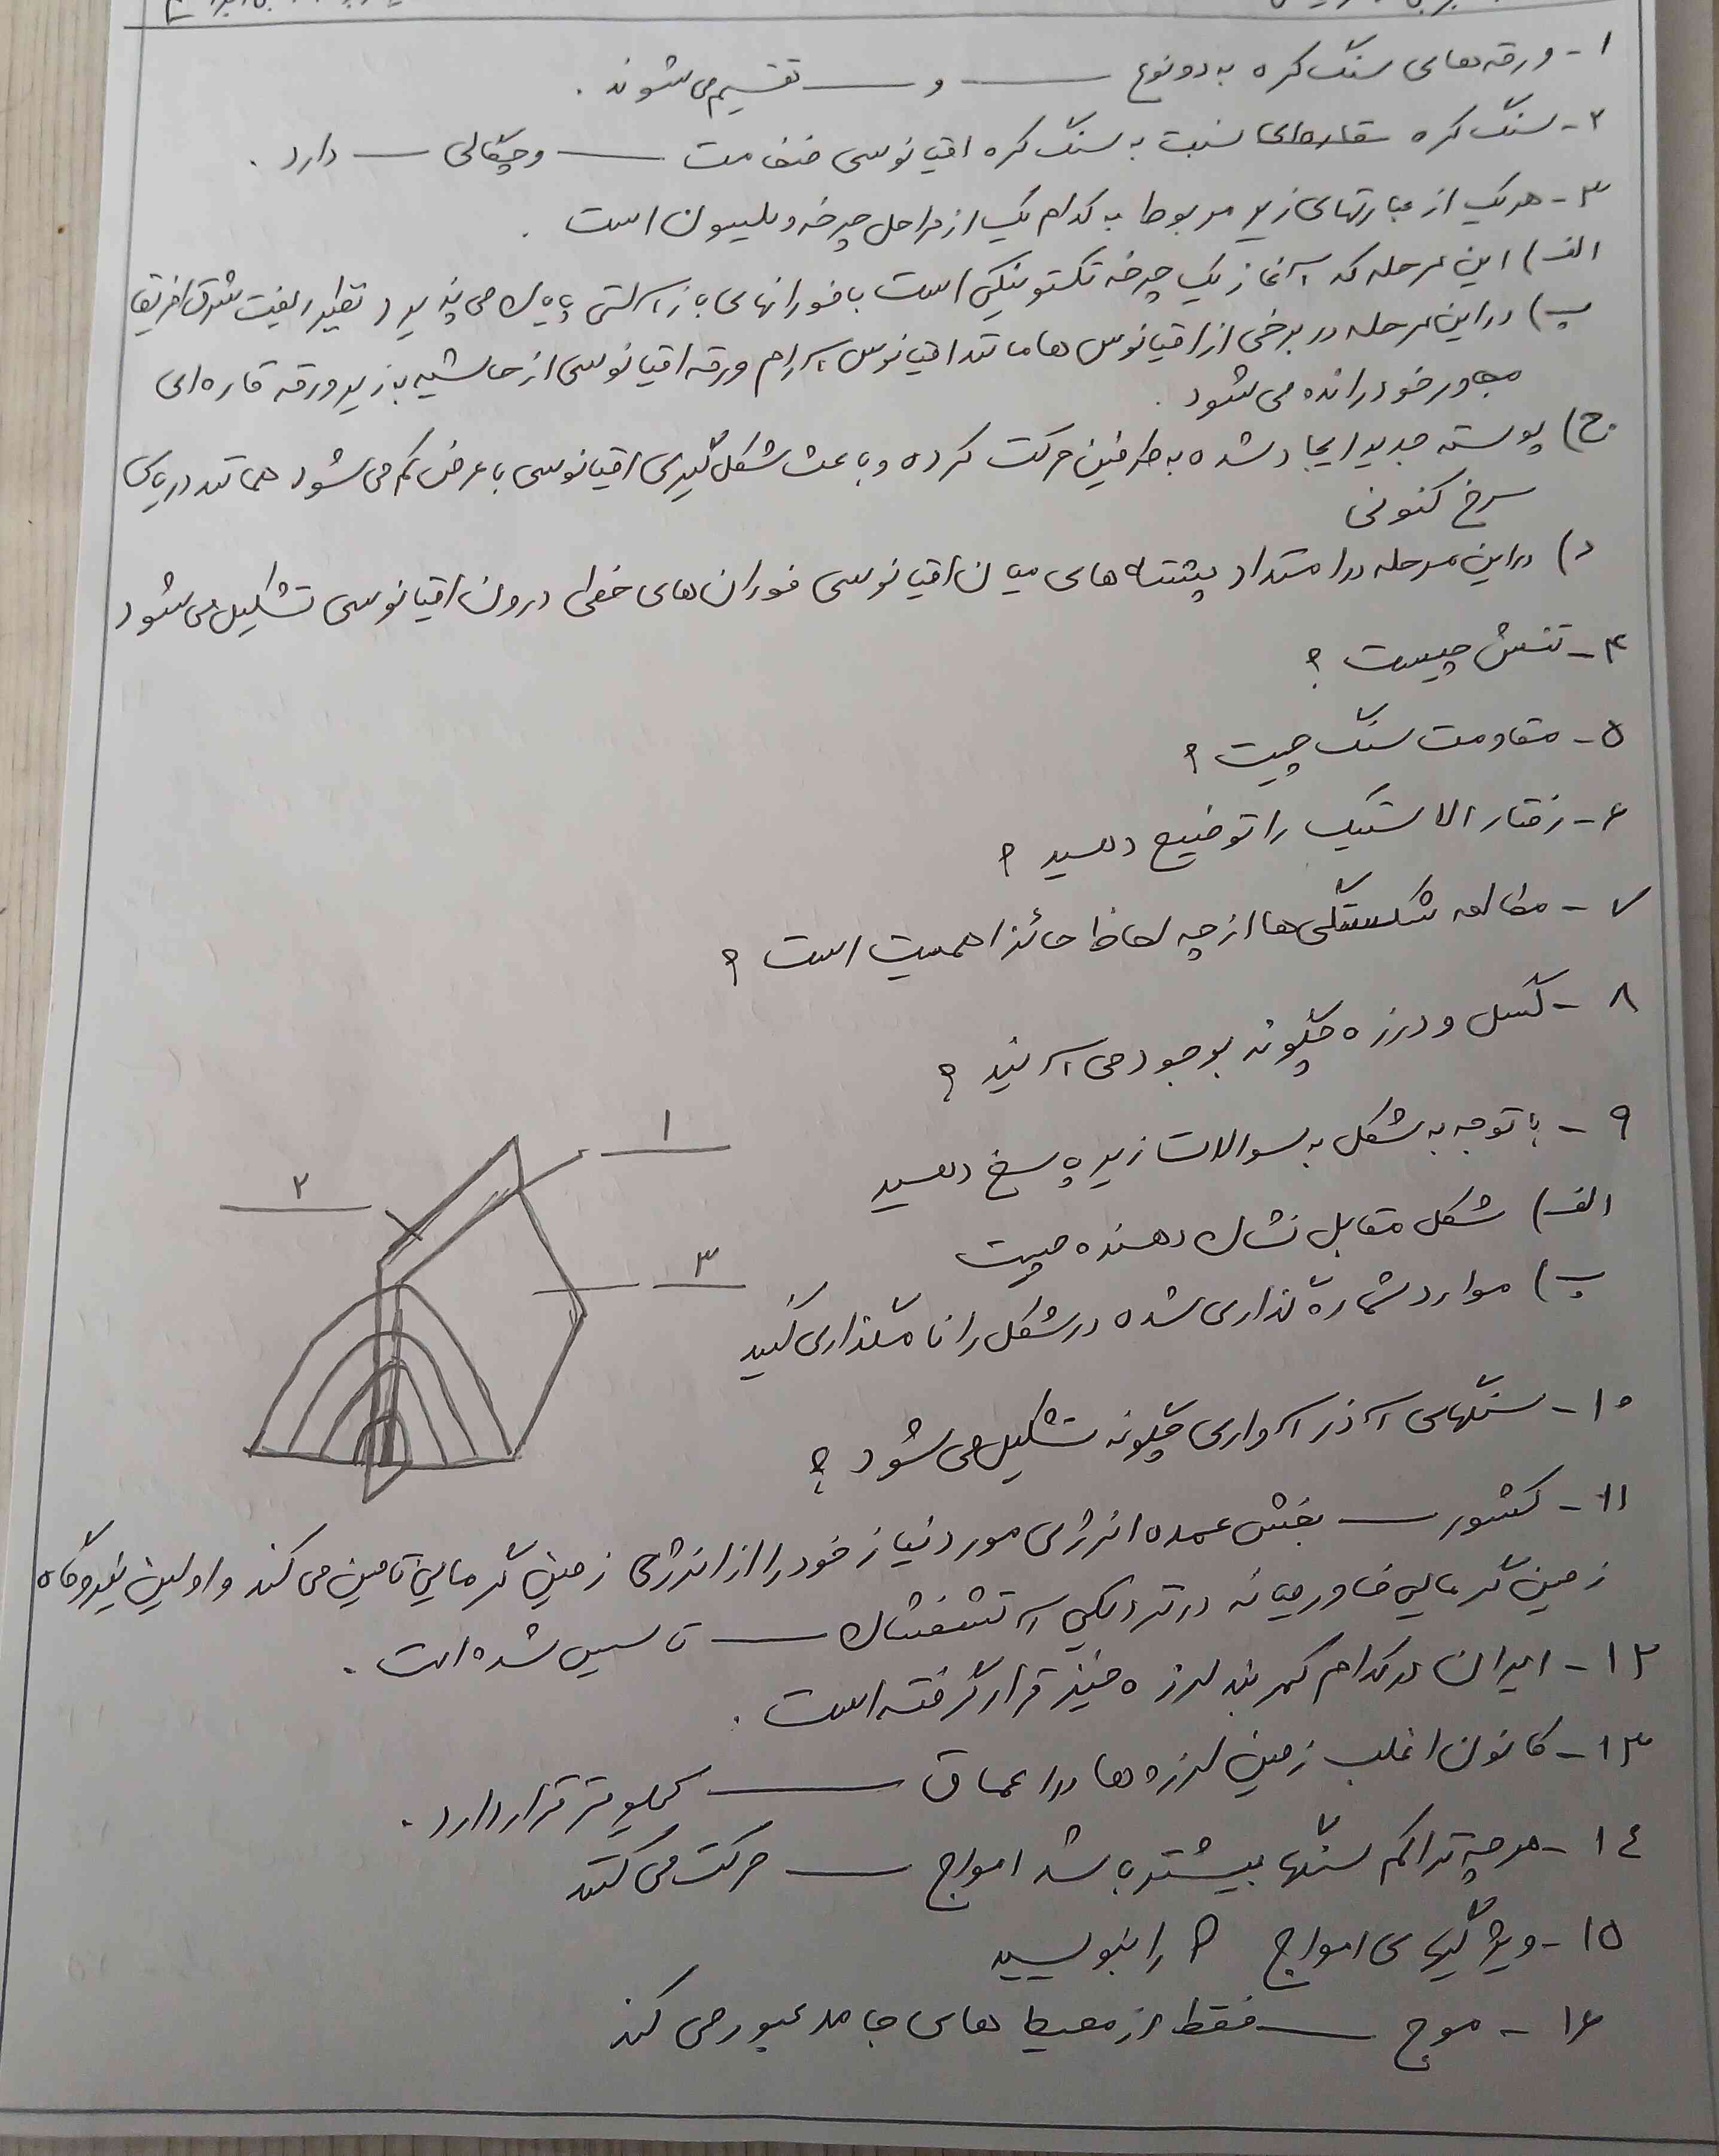 ۱- ورقه‌های سنگ کره به دو نوع ــــ و ــــ تقسیم می شوند .
۲- سنگ کره قاره‌ای نسبت به سنگ کره اقیانوسی ضخامت ــــ و چگالی ــــ دارد .
۳- هریک از عبارتهای زیر مربوط به کدام یک از مراحل چرخه ویلسون است .
الف) این مرحله که آغاز یک چرخه تکتونیکی است با فورانهای بازالتی پایان می پذیرد نظیر ریفت شرق افریقا
ب) در این مرحله در برخی از اقیانوس ها مانند اقیانوس آرام ورقه اقیانوسی از حاشیه به زیر ورقه قاره ای
مجاور خود رانده می شود .
ج) پوسته جدید ایجاد شده به طرفین حرکت کرده و باعث شکل گیری اقیانوسی با عرض کم می شود همانند دریای
سرخ کنونی
د) در این مرحله در امتداد پشته های میان اقیانوسی فوران های خطی درون اقیانوسی تشکیل می شود
۴- تنش چیست ؟
۵- مقاومت سنگ چیست ؟
۶- رفتار الاستیک را توضیح دهید ؟
۷- مطالعه شکستگی ها از چه لحاظ حائز اهمیت است ؟
۸- گسل و درزه چگونه بوجود می آیند ؟
۹- با توجه به شکل به سوالات زیر پاسخ دهید
الف) شکل مقابل نشان دهنده چیست
ب) موارد شماره گذاری شده در شکل را نامگذاری کنید
۱
۲
۳
۱۰- سنگهای آذر آواری چگونه تشکیل می شود ؟
۱۱- کشور ــــ بخش عمده انرژی مورد نیاز خود را از انرژی زمین گرمایی تامین می کند و اولین نیروگاه
زمین گرمایی خاورمیانه در نزدیکی آتشفشان ــــ تاسیس شده است .
۱۲- ایران در کدام کمربند لرزه خیز قرار گرفته است .
۱۳- کانون اغلب زمین لرزه ها در اعماق ــــ کیلومتر قرار دارد .
۱٤- هرچه تراکم سنگها بیشتر باشد امواج ــــ حرکت می کنند
۱۵- ویژگیهای امواج P را بنویسید
۱۶- موج ــــ فقط از محیط های جامد عبور می کند